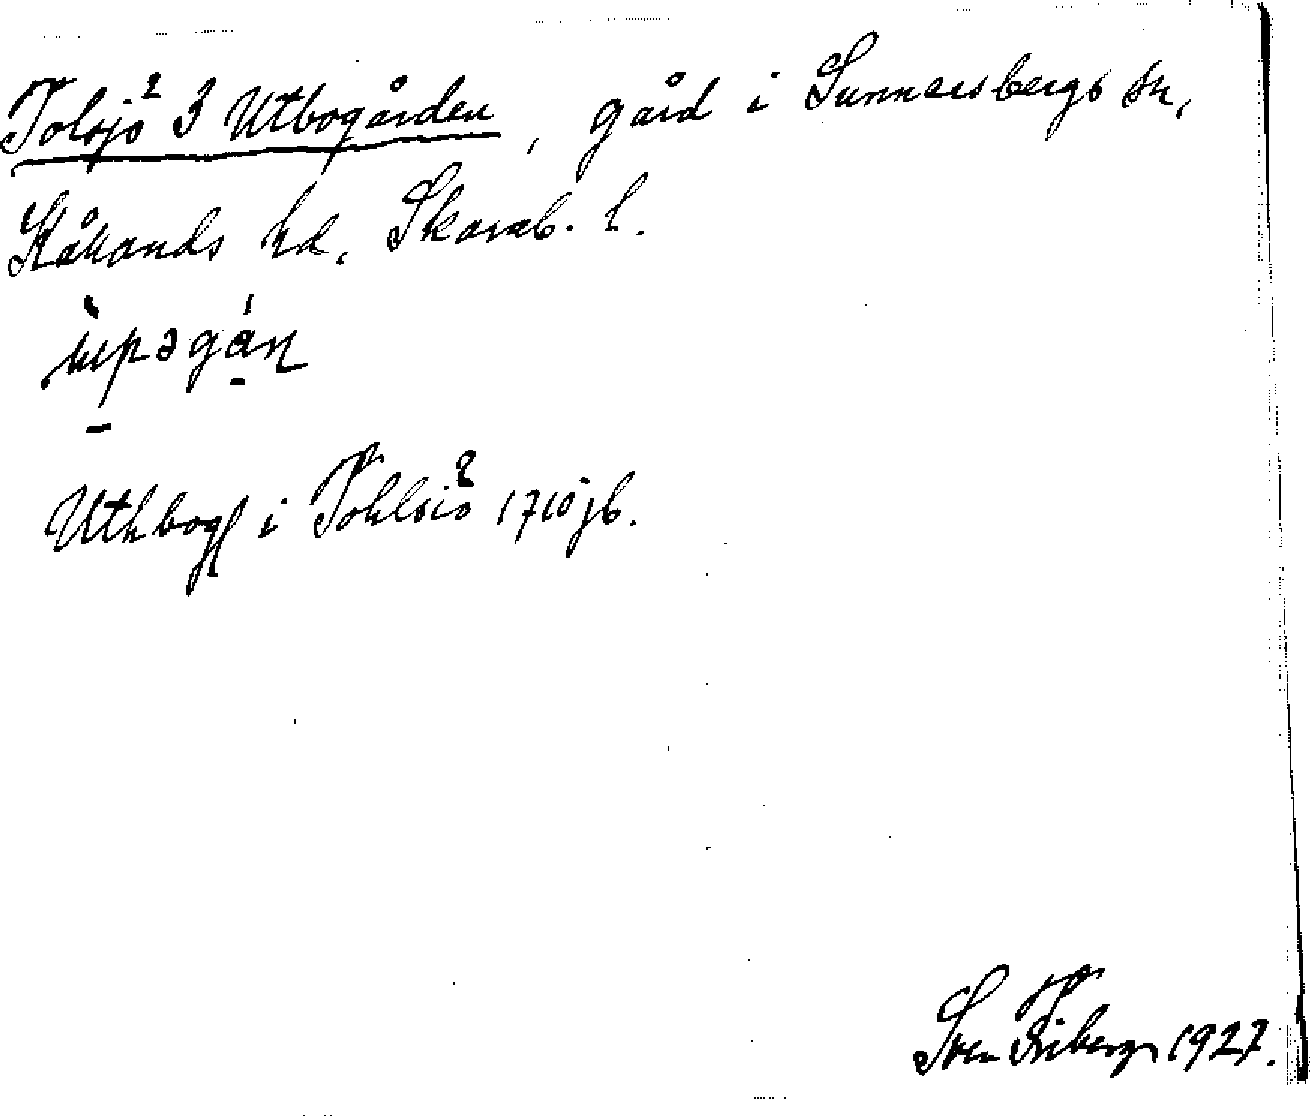 Tolsjö 3 Utbogården, gård i Sunnersbergs sn,
Kållands hd, Skarab. l.
Uthbog i Tohlsiö 1710 jb.
Sven Friberg 1927.